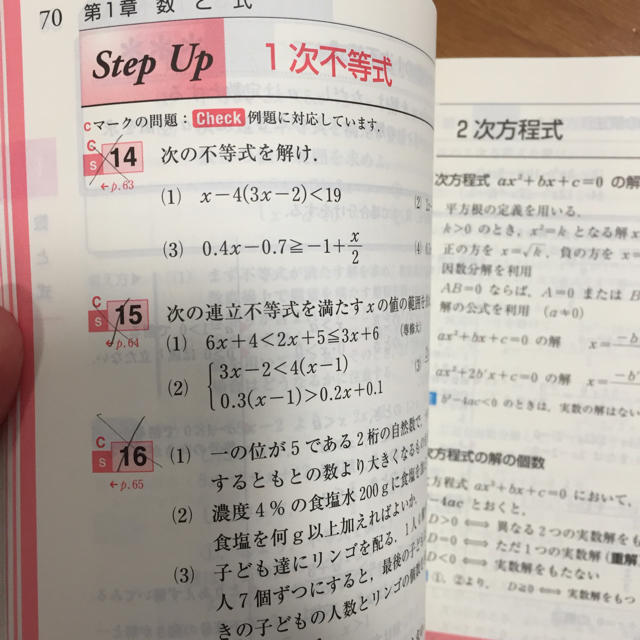 70 第1章 数 と 式
Step Up 1次不等式
Cマークの問題：Check 例題に対応しています.
C S 14 次の不等式を解け.
←p.63
(1) x−4(3x−2)<19
(2)
(3) 0.4x−0.7≧−1+x/2
(4)
C S 15 次の連立不等式を満たすxの値の範囲を
←p.64
(1) 6x+4<2x+5≦3x+6 (専修大)
(2) {3x−2<4(x−1)
0.3(x−1)>0.2x+0.1
(3)
C S 16 (1) 一の位が5である2桁の自然数で,
←p.65
するともとの数より大きくなるもの
(2) 濃度4%の食塩水200gに食塩を
食塩を何g以上加えればよいか.
(3) 子ども達にリンゴを配る. 1人
人7個ずつにすると, 最後の子
きの子どもの人数とリンゴの個数
2次方程式
次方程式 ax²+bx+c=0 の解
平方根の定義を用いる.
k>0 のとき, x²=k となる解x
正の方を x=√k, 負の方を x=
因数分解を利用
AB=0 ならば, A=0 または B
解の公式を利用 (a≠0)
ax²+bx+c=0 の解 x=−b
ax²+2b'x+c=0 の解 x=−b'
b'²−4ac<0 のときは, 実数の解はない
次方程式の解の個数
方程式 ax²+bx+c=0 において,
−4ac とおくと,
D>0 ⟺ 異なる2つの実数解をも
D=0 ⟺ ただ1つの実数解(重解)
D<0 ⟺ 実数解をもたない
①, ②より, D≧0 ⟺ 実数解をもつ